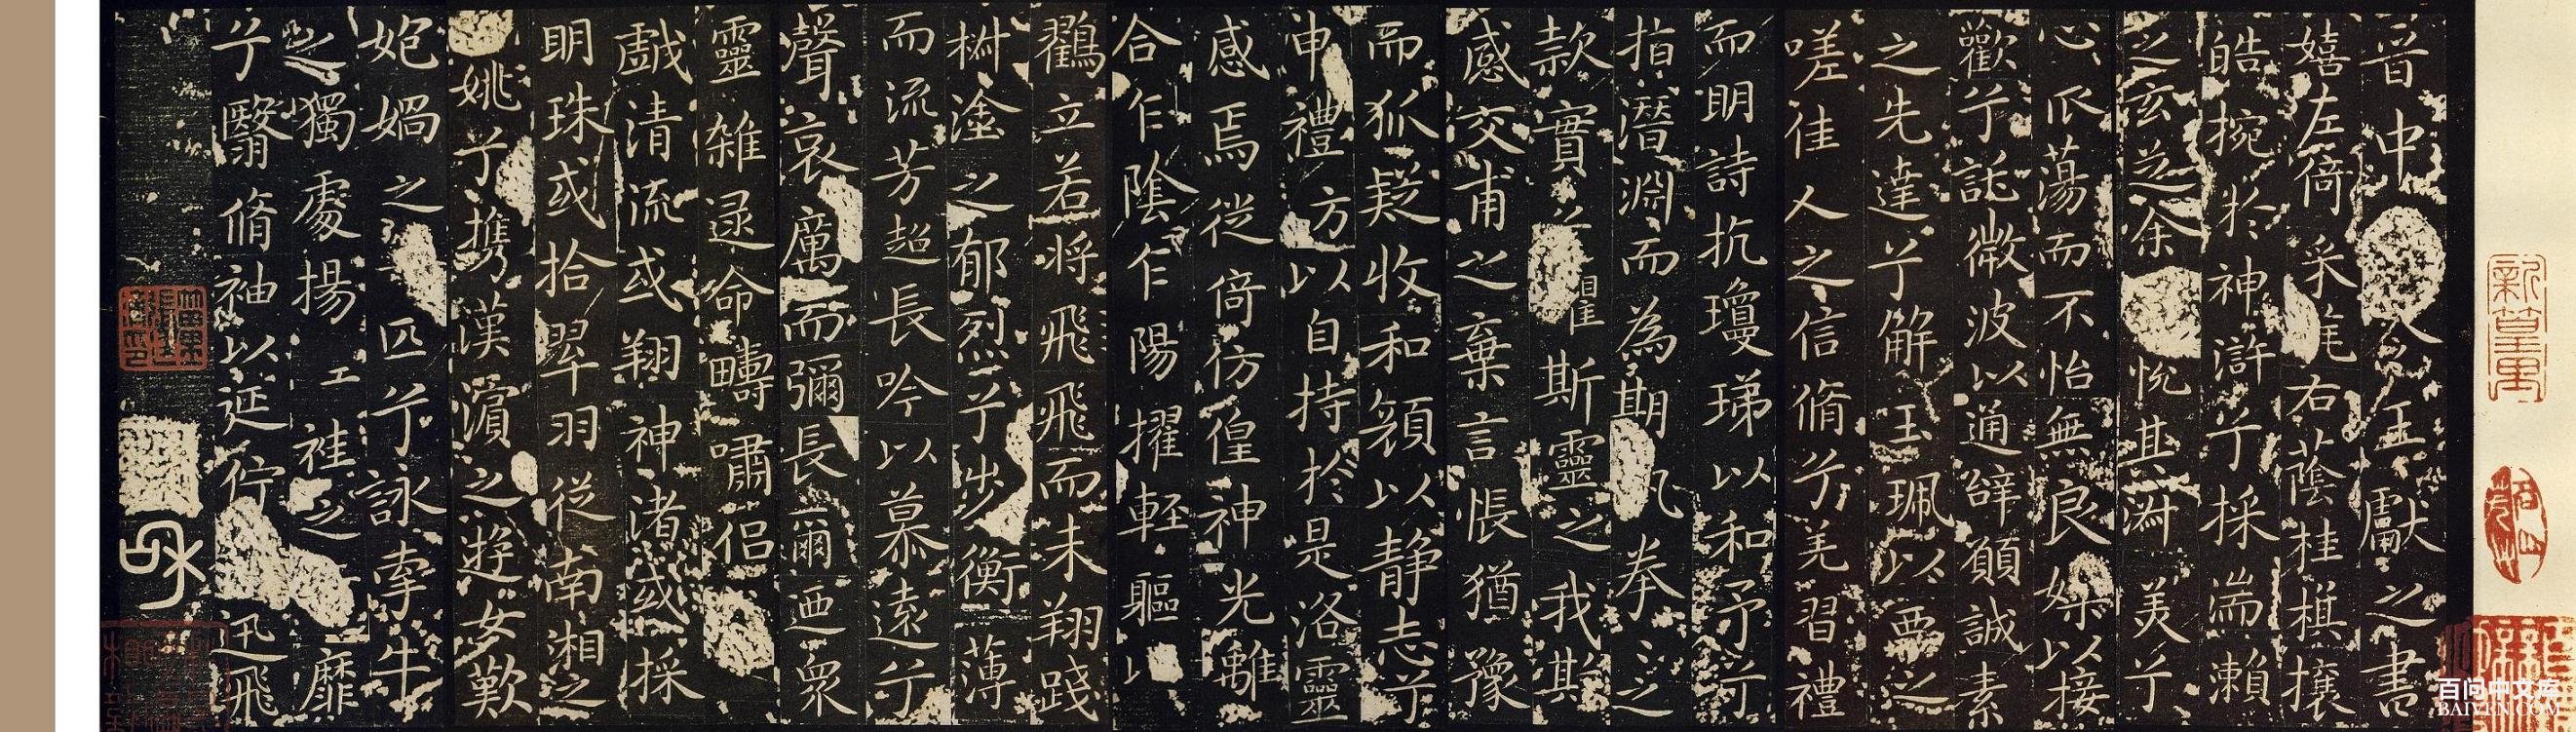 晉中令王獻之書
嬉左倚采旄右蔭桂旗攘
皓捥於神滸兮採湍瀨
之玄芝余悅其淑美兮
心振蕩而不怡無良媒以接
歡兮託微波以通辭願誠素
之先達兮解玉珮以要之
嗟佳人之信脩兮羌習禮
而明詩抗瓊珶以和予兮
指潛淵而為期拳之
款實兮懼斯靈之我欺
感交甫之棄言悵猶豫
而狐疑收和顏以靜志兮
申禮防以自持於是洛靈
感焉徙倚仿偟神光離
合乍陰乍陽擢輕軀以
鸛立若將飛飛而未翔踐
椒塗之郁烈兮步衡薄
而流芳超長吟以慕遠兮
聲哀厲而彌長爾迺眾
靈雜遝命疇嘯侶
戲清流或翔神渚或採
明珠或拾翠羽從南湘之
姚兮攜漢濱之遊女歎
媧之匹兮詠牽牛
之獨處揚袿之靡
兮翳脩袖以延佇迅飛
百问中文库
BAIVEN.COM